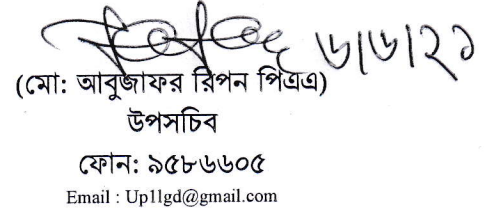 ৬|৬|২১
(মো: আবুজাফর রিপন পিএএ)
উপসচিব
ফোন: ৯৫৮৬৬০৫
Email : Up1lgd@gmail.com